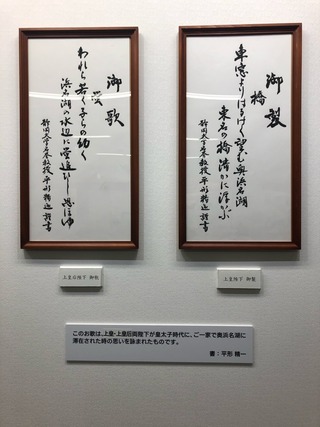 御製
橋
車窓よりはるけく望む奥浜名湖
東名の橋清かに浮かぶ
静岡大学名誉教授 平形精逸 謹書
御歌
螢
われら若く子らの幼く
浜名湖の水辺に螢追ひし思ほゆ
静岡大学名誉教授 平形精逸 謹書
上皇后陛下 御歌
上皇陛下 御製
このお歌は、上皇・上皇后両陛下が皇太子時代に、ご一家で奥浜名湖に
滞在された時の思いを詠まれたものです。
書：平形 精一